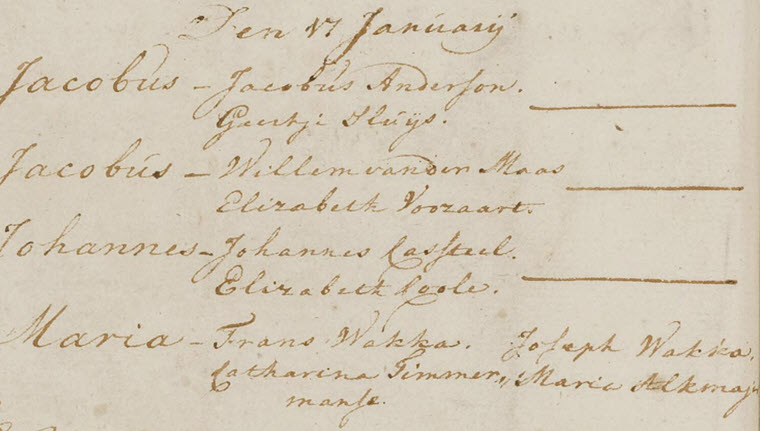 Den 17 Januarij
Jacobus – Jacobus Anderson.
Geertje Sluijs.
Jacobus – Willem van der Maas
Elizabeth Voozaart.
Johannes – Johannes Casteel.
Elizabeth Coole.
Maria – Frans Wakka. Joseph Wakka.
Catharina Timmer„ Maria Alkmaj
manse.